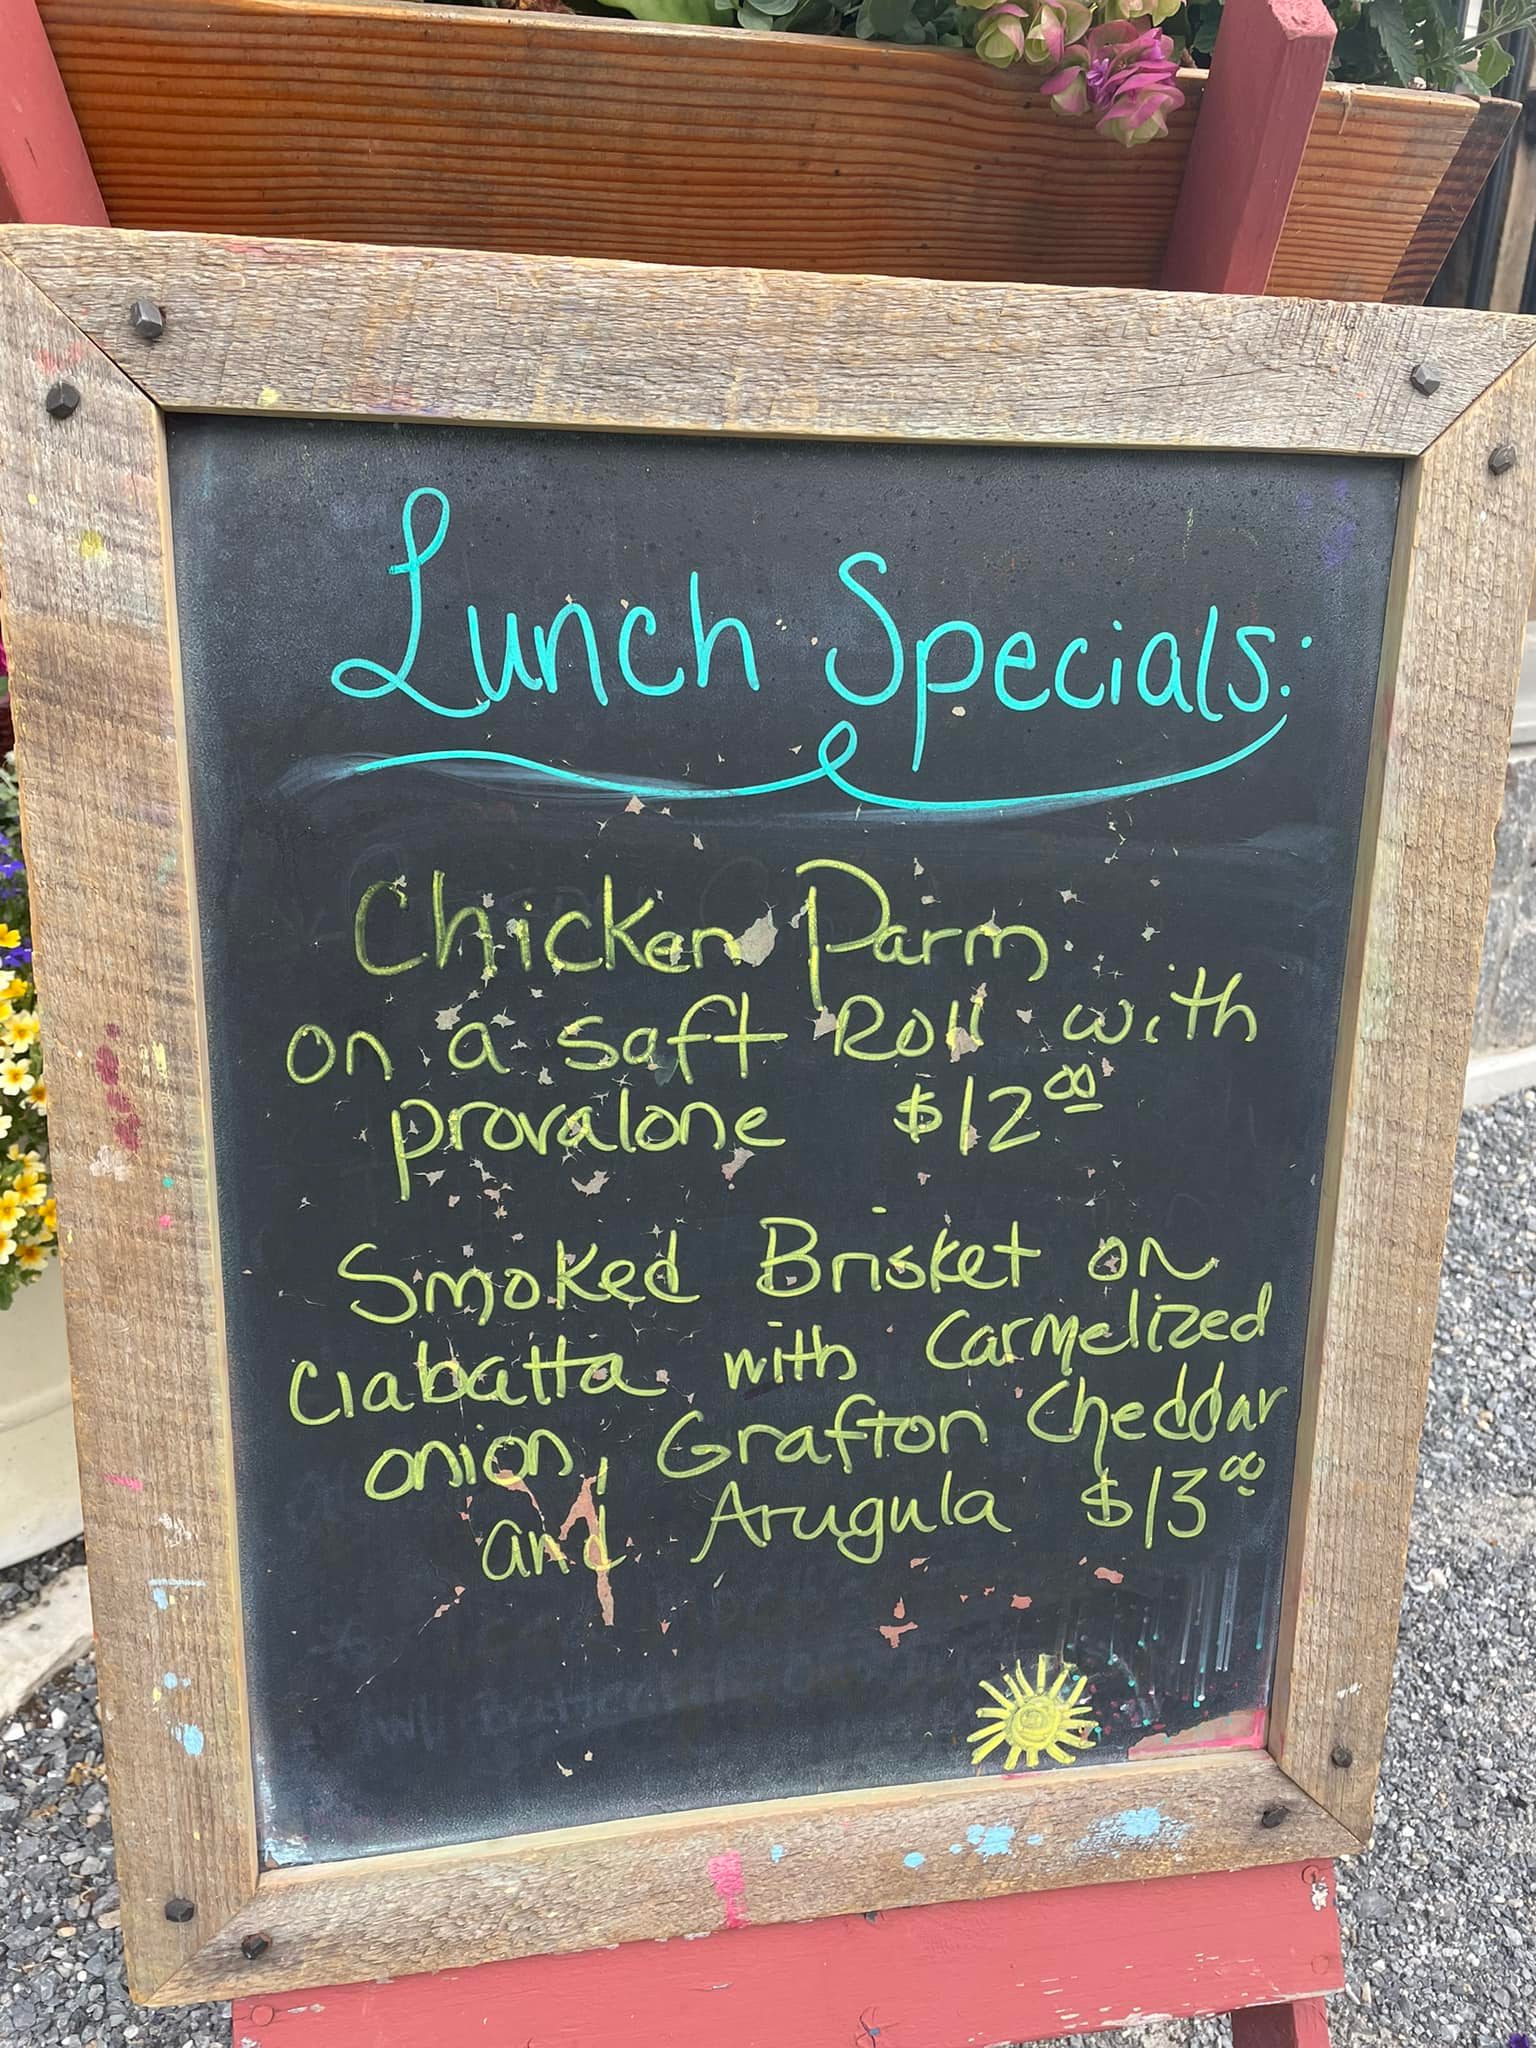 Lunch Specials:
Chicken Parm
on a saft Roll with
provalone $12.00
Smoked Brisket on
Ciabatta with Carmelized
onion, Grafton Cheddar
and Arugula $13.00